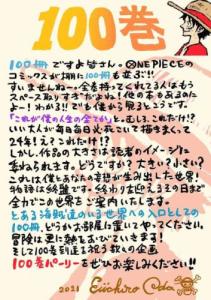 100巻
100冊ですよ皆さん。ONE PIECEの
コミックスが棚に100冊も並ぶ!!
すいませんねー、全巻持ってくれてる人はもう
スペース取りすぎだよな。
よー!わかる!!でも僕から見るとこうです。
「これが僕の人生の全てか」と。むしろ、これだけ!?
いい大人が毎日毎日必死こいて描きまくって
24年!えっこれだけ!?
しかし、作品の大きさは読者のイメージに
委ねられます。どうですか?大きい?小さい?
これは僕とあなたの空想が生み出した世界!
物語は終盤です。終わりを迎えるその日まで
全力でこの世界をご案内いたします。
とある海賊達のいる世界への入口としての
100冊、どうかお部屋に置いてやってください。
冒険は更に熱をおびていきます!
そして100巻到達を祝う数々の企画
100巻パーリーをぜひお楽しみください!!
2021 Eiichiro Oda